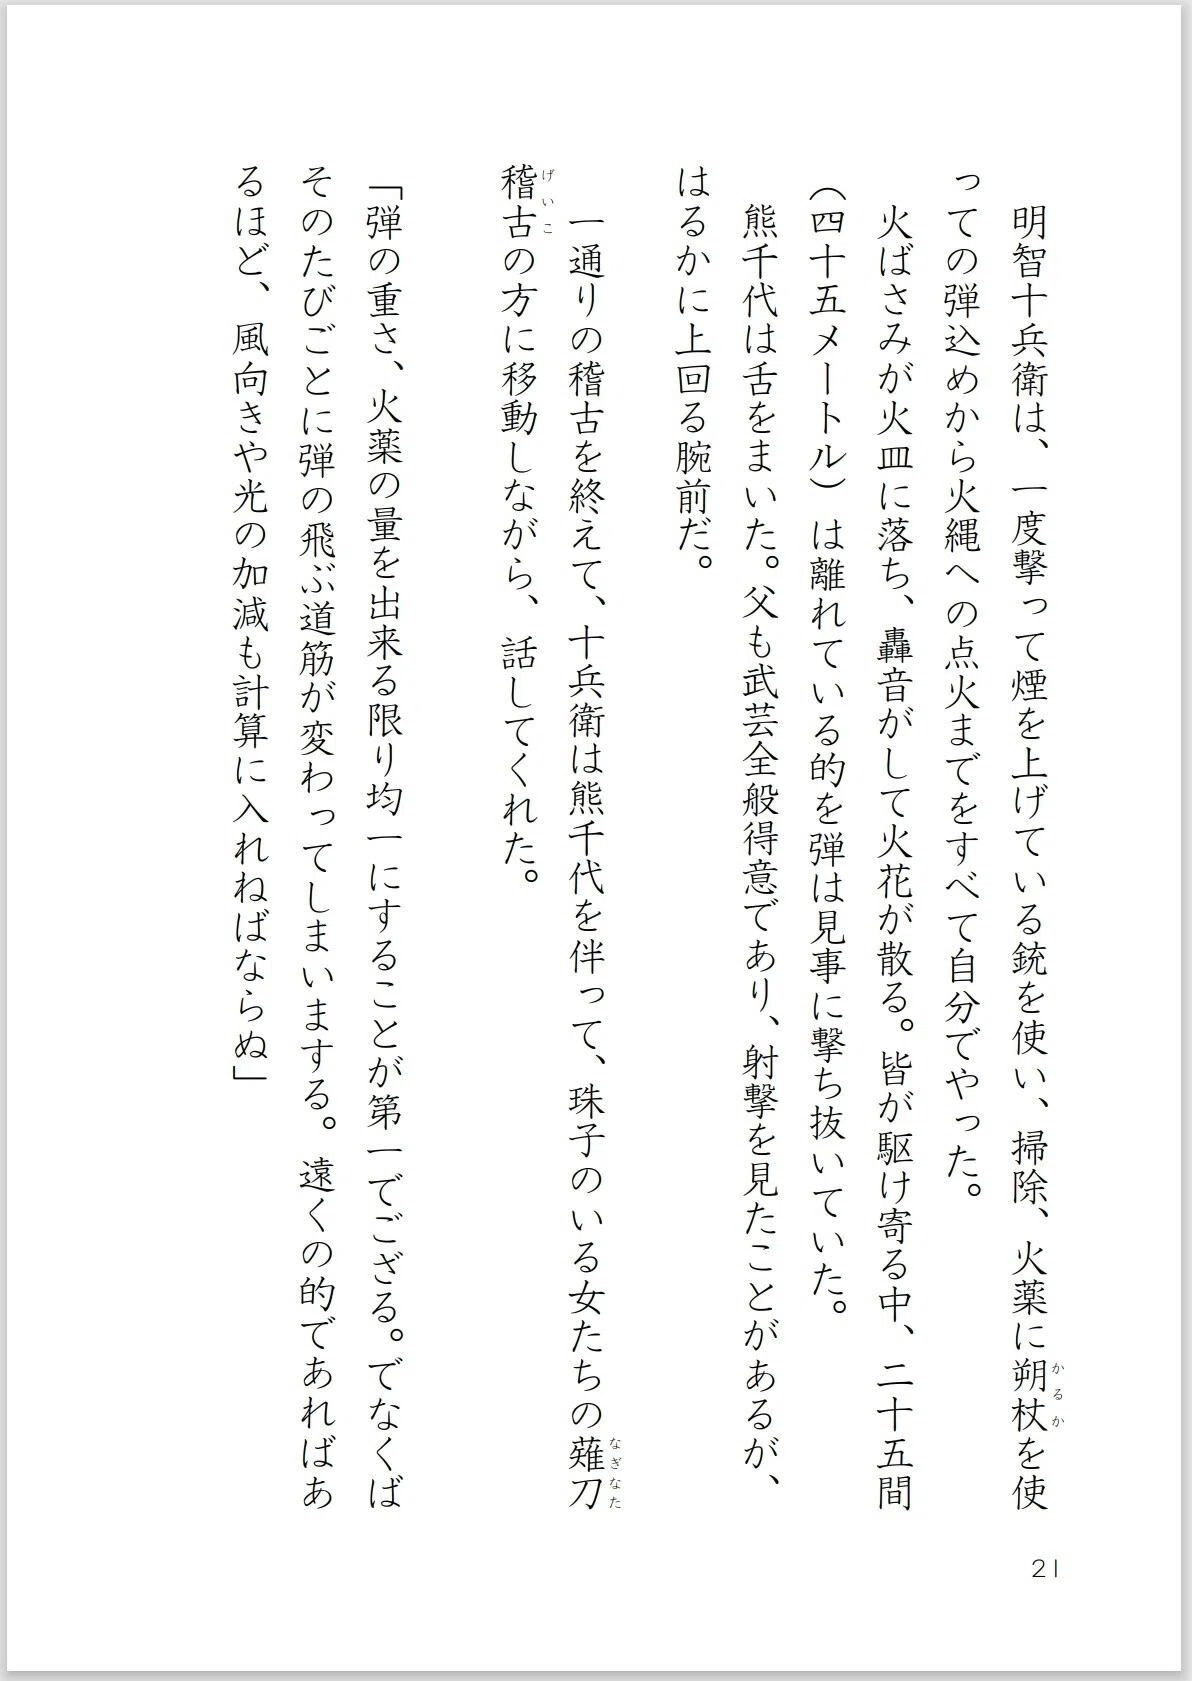 明智十兵衛は、一度撃って煙を上げている銃を使い、掃除、火薬に朔杖を使
かるか
っての弾込めから火縄への点火までをすべて自分でやった。
火ばさみが火皿に落ち、轟音がして火花が散る。皆が駆け寄る中、二十五間
（四十五メートル）は離れている的を弾は見事に撃ち抜いていた。
熊千代は舌をまいた。父も武芸全般得意であり、射撃を見たことがあるが、
はるかに上回る腕前だ。
一通りの稽古を終えて、十兵衛は熊千代を伴って、珠子のいる女たちの薙刀
なぎなた
稽古の方に移動しながら、話してくれた。
げいこ
「弾の重さ、火薬の量を出来る限り均一にすることが第一でござる。でなくば
そのたびごとに弾の飛ぶ道筋が変わってしまいまする。遠くの的であればあ
るほど、風向きや光の加減も計算に入れねばならぬ」
21